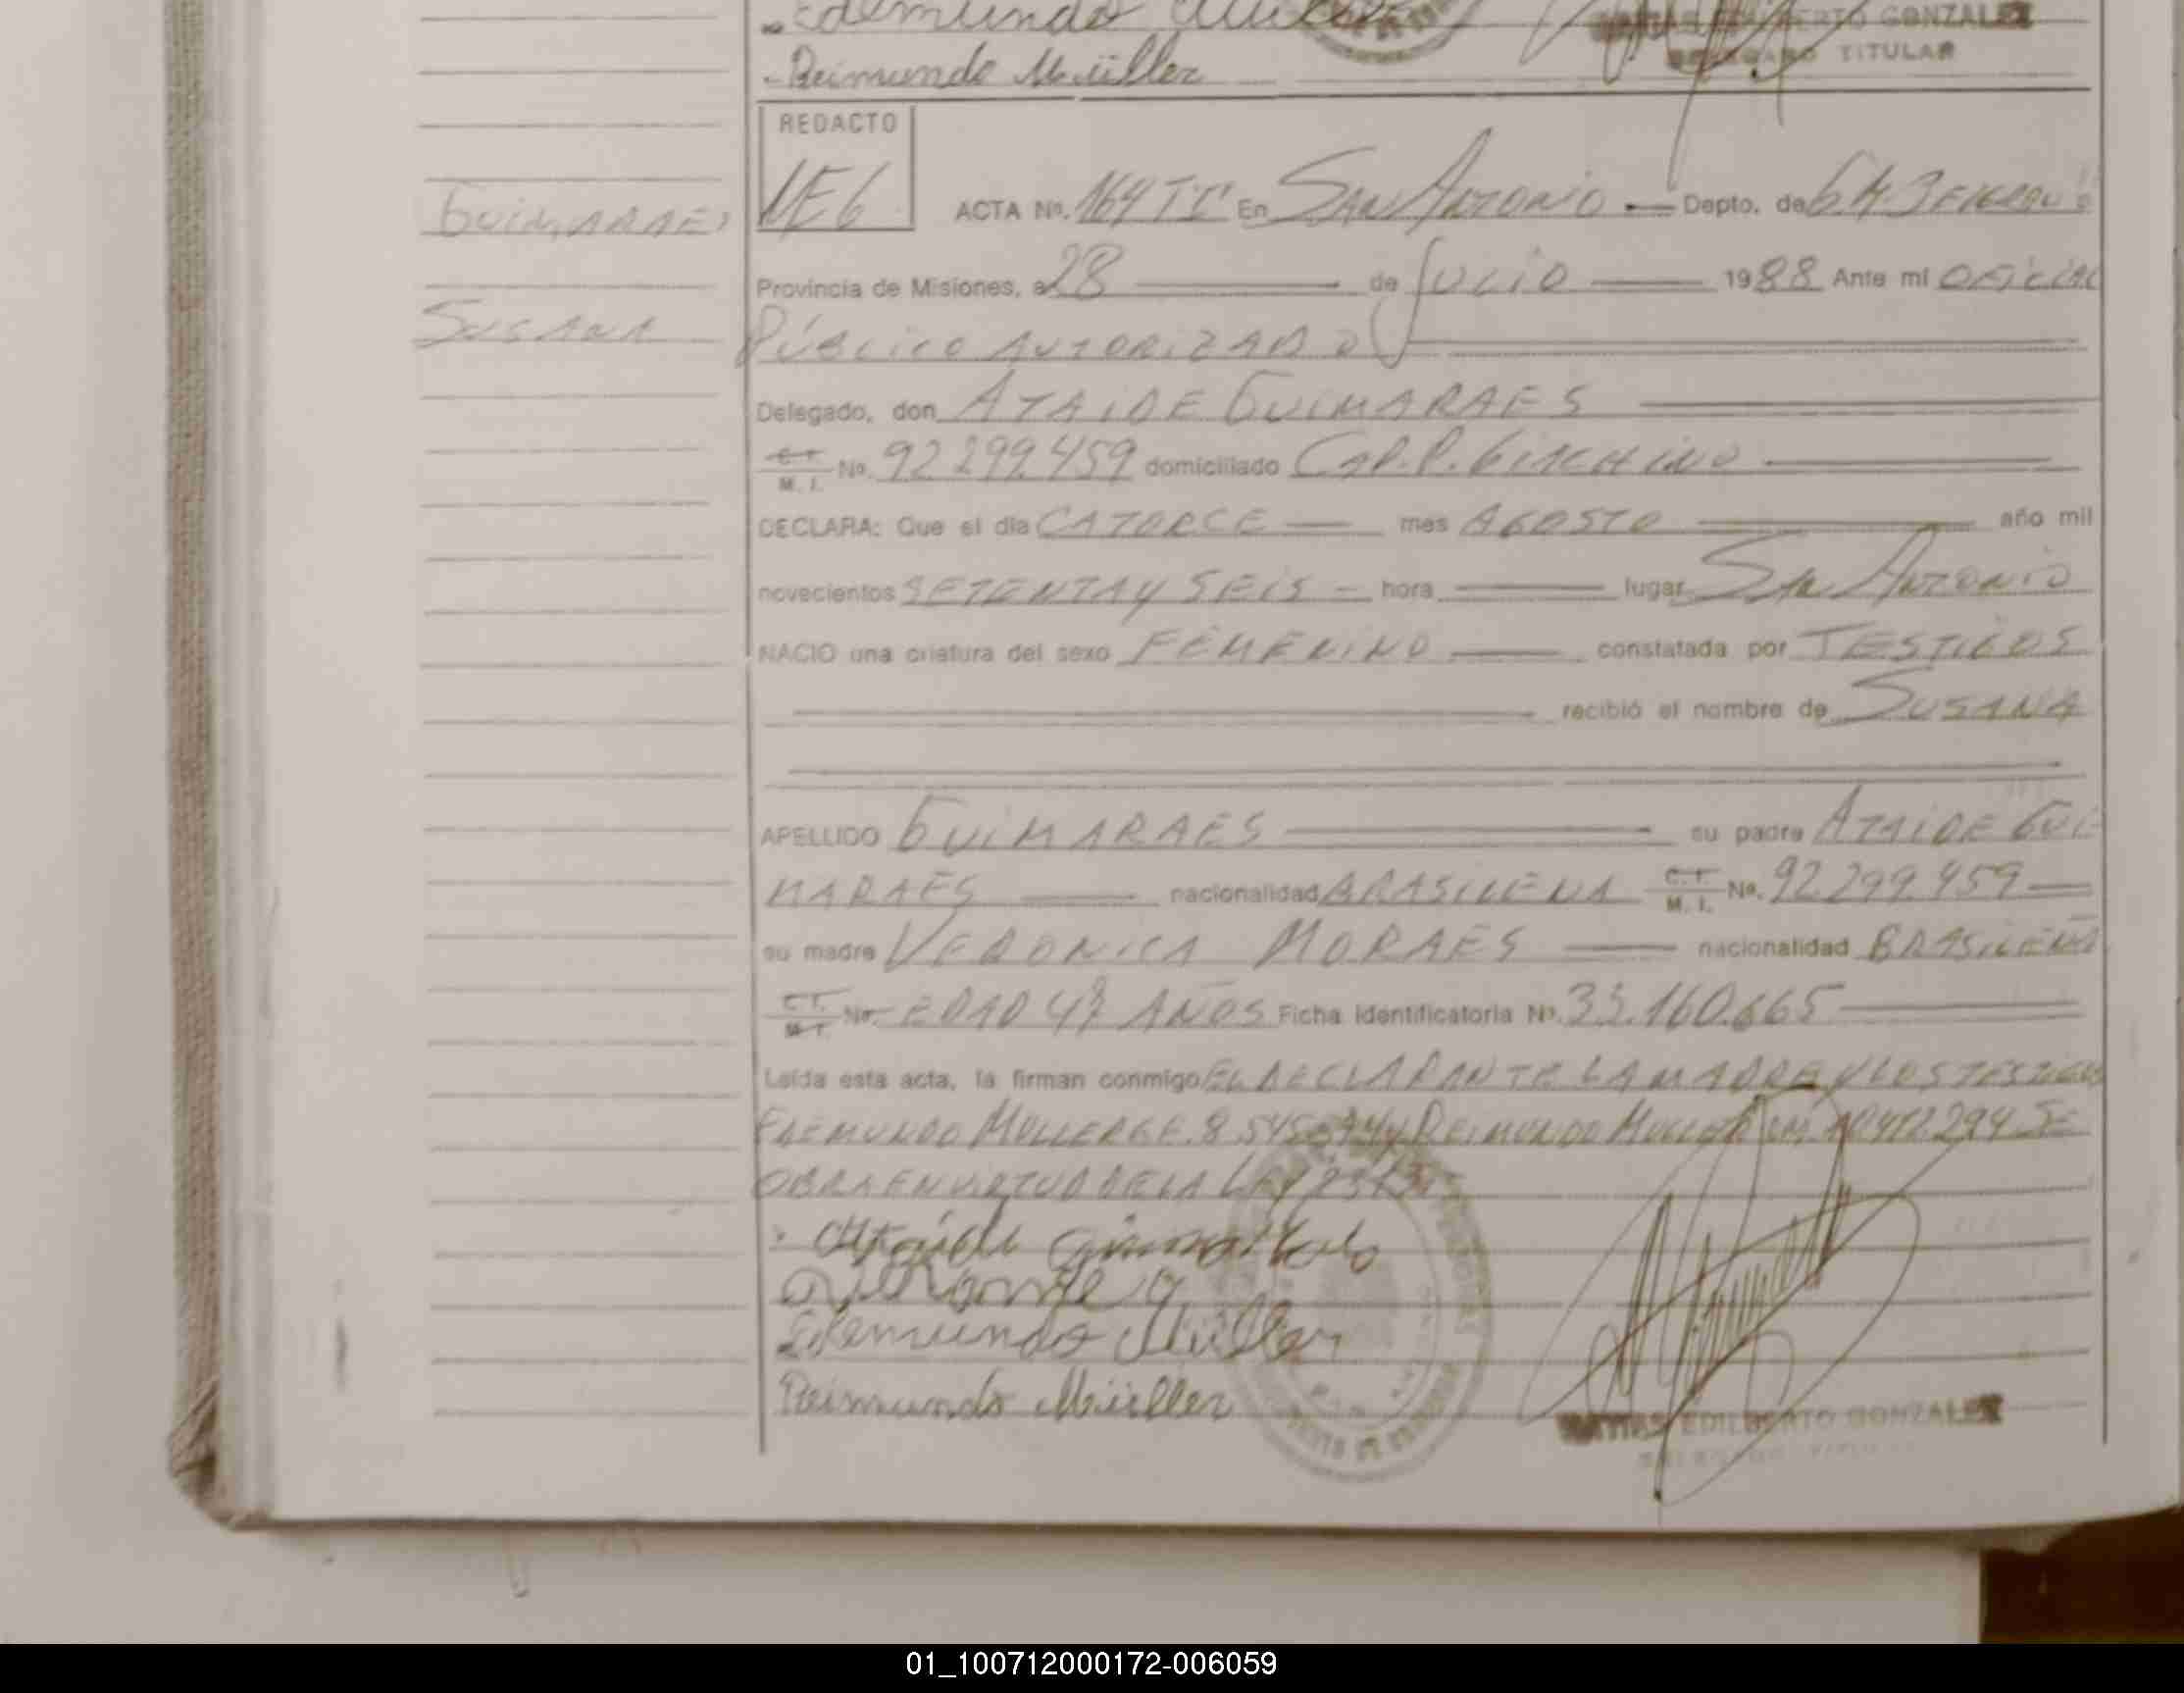 Edemundo Müller
GONZALEZ
TITULAR
- Reimundo Müller
REDACTO
ACTA Nº. 164 TI En SAN ANTONIO Depto. de
GUIMARAES
Provincia de Misiones, a 28 de JULIO 1988 Ante mi OFICIAL
SUSANA
PÚBLICO AUTORIZADO
Delegado, don ATAIDE GUIMARAES
C.I. M. I. Nº. 92.299.459 domiciliado CAP. P. GIACHINO
DECLARA: Que el día CATORCE mes AGOSTO año mil
novecientos SETENTA Y SEIS - hora lugar SAN ANTONIO
NACIO una criatura del sexo FEMENINO constatada por TESTIGOS
recibió el nombre de SUSANA
APELLIDO GUIMARAES su padre ATAIDE GUI
MARAES nacionalidad BRASILEÑA C.I. M. I. Nº. 92.299.459
su madre VERONICA MORAES nacionalidad BRASILEÑA
C.I. M.I. Nº. EDAD AÑOS Ficha identificatoria Nº. 33.160.665
Leída esta acta, la firman conmigo EL DECLARANTE LA MADRE Y LOS TESTIGOS
EDEMUNDO MULLER REIMUNDO MULLER SE
OBRA EN VIRTUD DE LA LEY
Edemundo Müller
Reimundo Müller
MATIAS EDILBERTO GONZALEZ
01_100712000172-006059